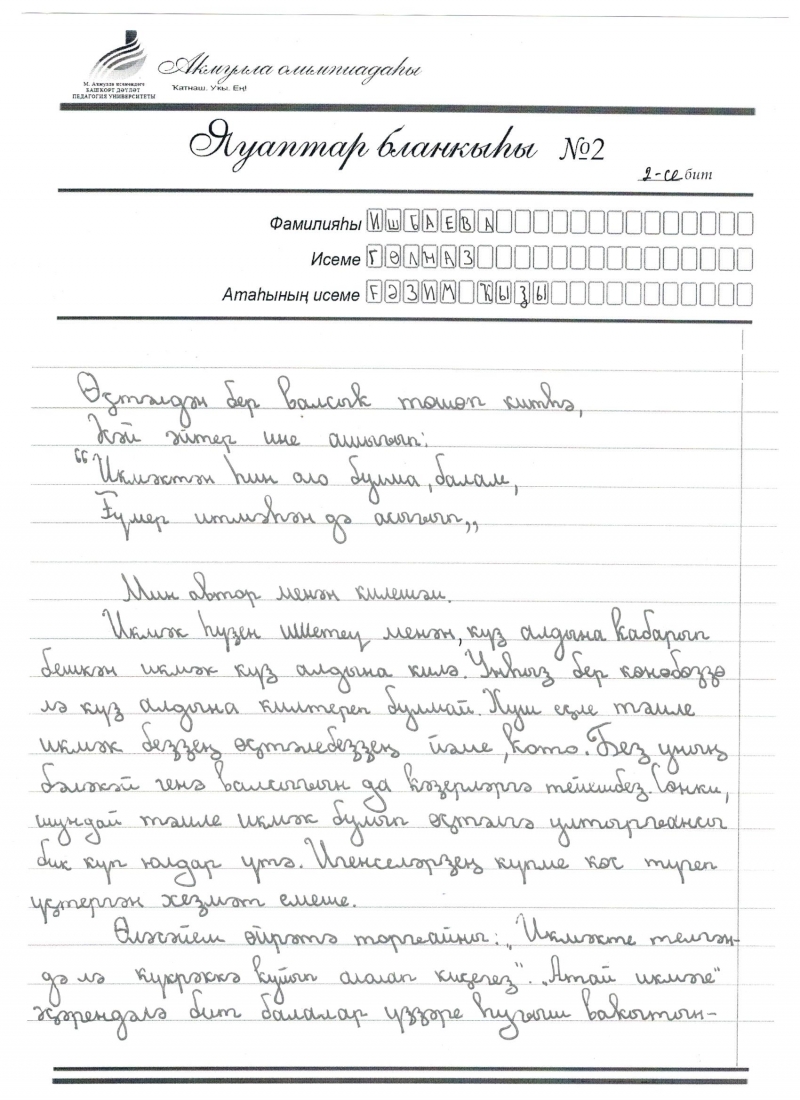 М. Акмулла исемендәге
БАШҠОРТ ДӘҮЛӘТ
ПЕДАГОГИЯ УНИВЕРСИТЕТЫ
Акмулла олимпиадаһы
Ҡатнаш. Уҡы. Ең!
Яуаптар бланкыһы №2
2-се бит
Фамилияһы ИШБАЕВА
Исеме ГӨЛНАЗ
Атаһының исеме ҒӘЗИМ ҠЫҘЫ
Өҫтәлдән бер валсыҡ төшөп китһә,
Ҡәй әйтер ине ашығып:
"Икмәктән һин оло булма, балам,
Ғүмер итмәһән дә асығып,,
Мин автор менән килешәм.
Икмәк һүҙен ишетеү менән, күҙ алдына ҡабарып
бешкән икмәк күҙ алдына килә. Унһыҙ бер көнөбөҙҙө
лә күҙ алдына килтереп булмай. Хуш еҫле тәмле
икмәк беҙҙең өҫтәлебеҙҙең йәме, ҡото. Беҙ уның
бәләкәй генә валсығын да ҡәҙерләргә тейешбеҙ. Сөнки,
шундай тәмле икмәк булып өҫтәлгә ултырғансы
бик күп юлдар үтә. Игенселәрҙең күпме көс түгеп
үҫтергән хеҙмәт емеше.
Өләсәйем өйрәтә торғайны: „Икмәкте телгән-
дә лә күкрәккә ҡуйып алалап киҫегеҙ". „Атай икмәге"
әҫәрендәлә бит балалар үҙҙәре һуғыш ваҡытын-